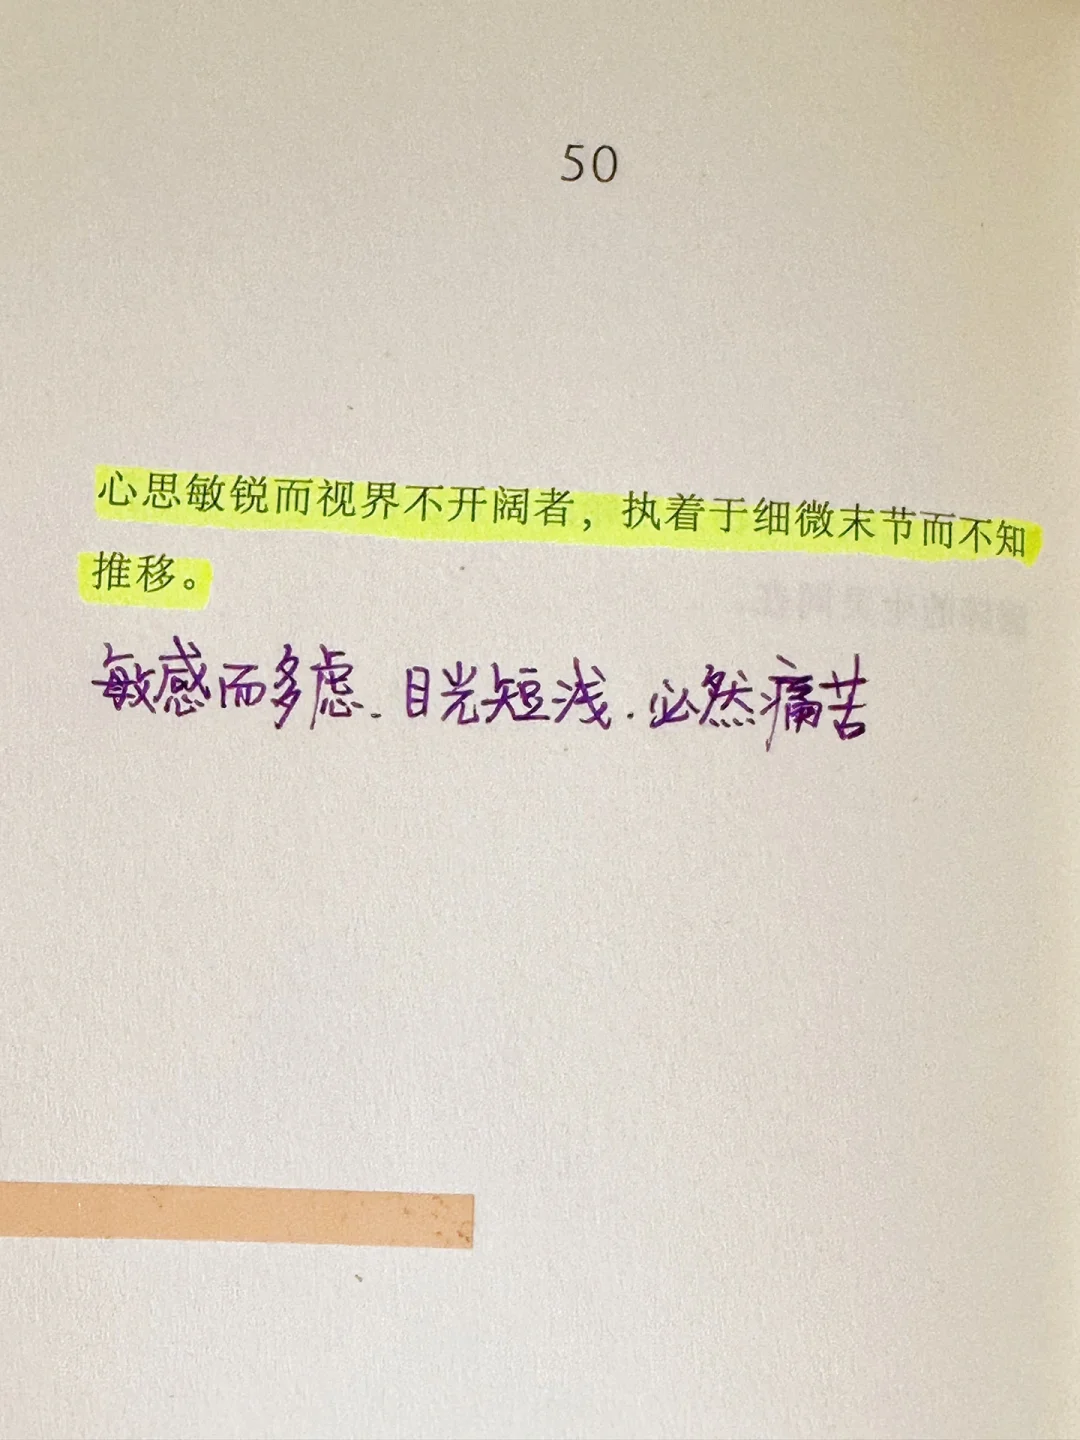 50
心思敏锐而视界不开阔者，执着于细微末节而不知
推移。
敏感而多虑.目光短浅.必然痛苦